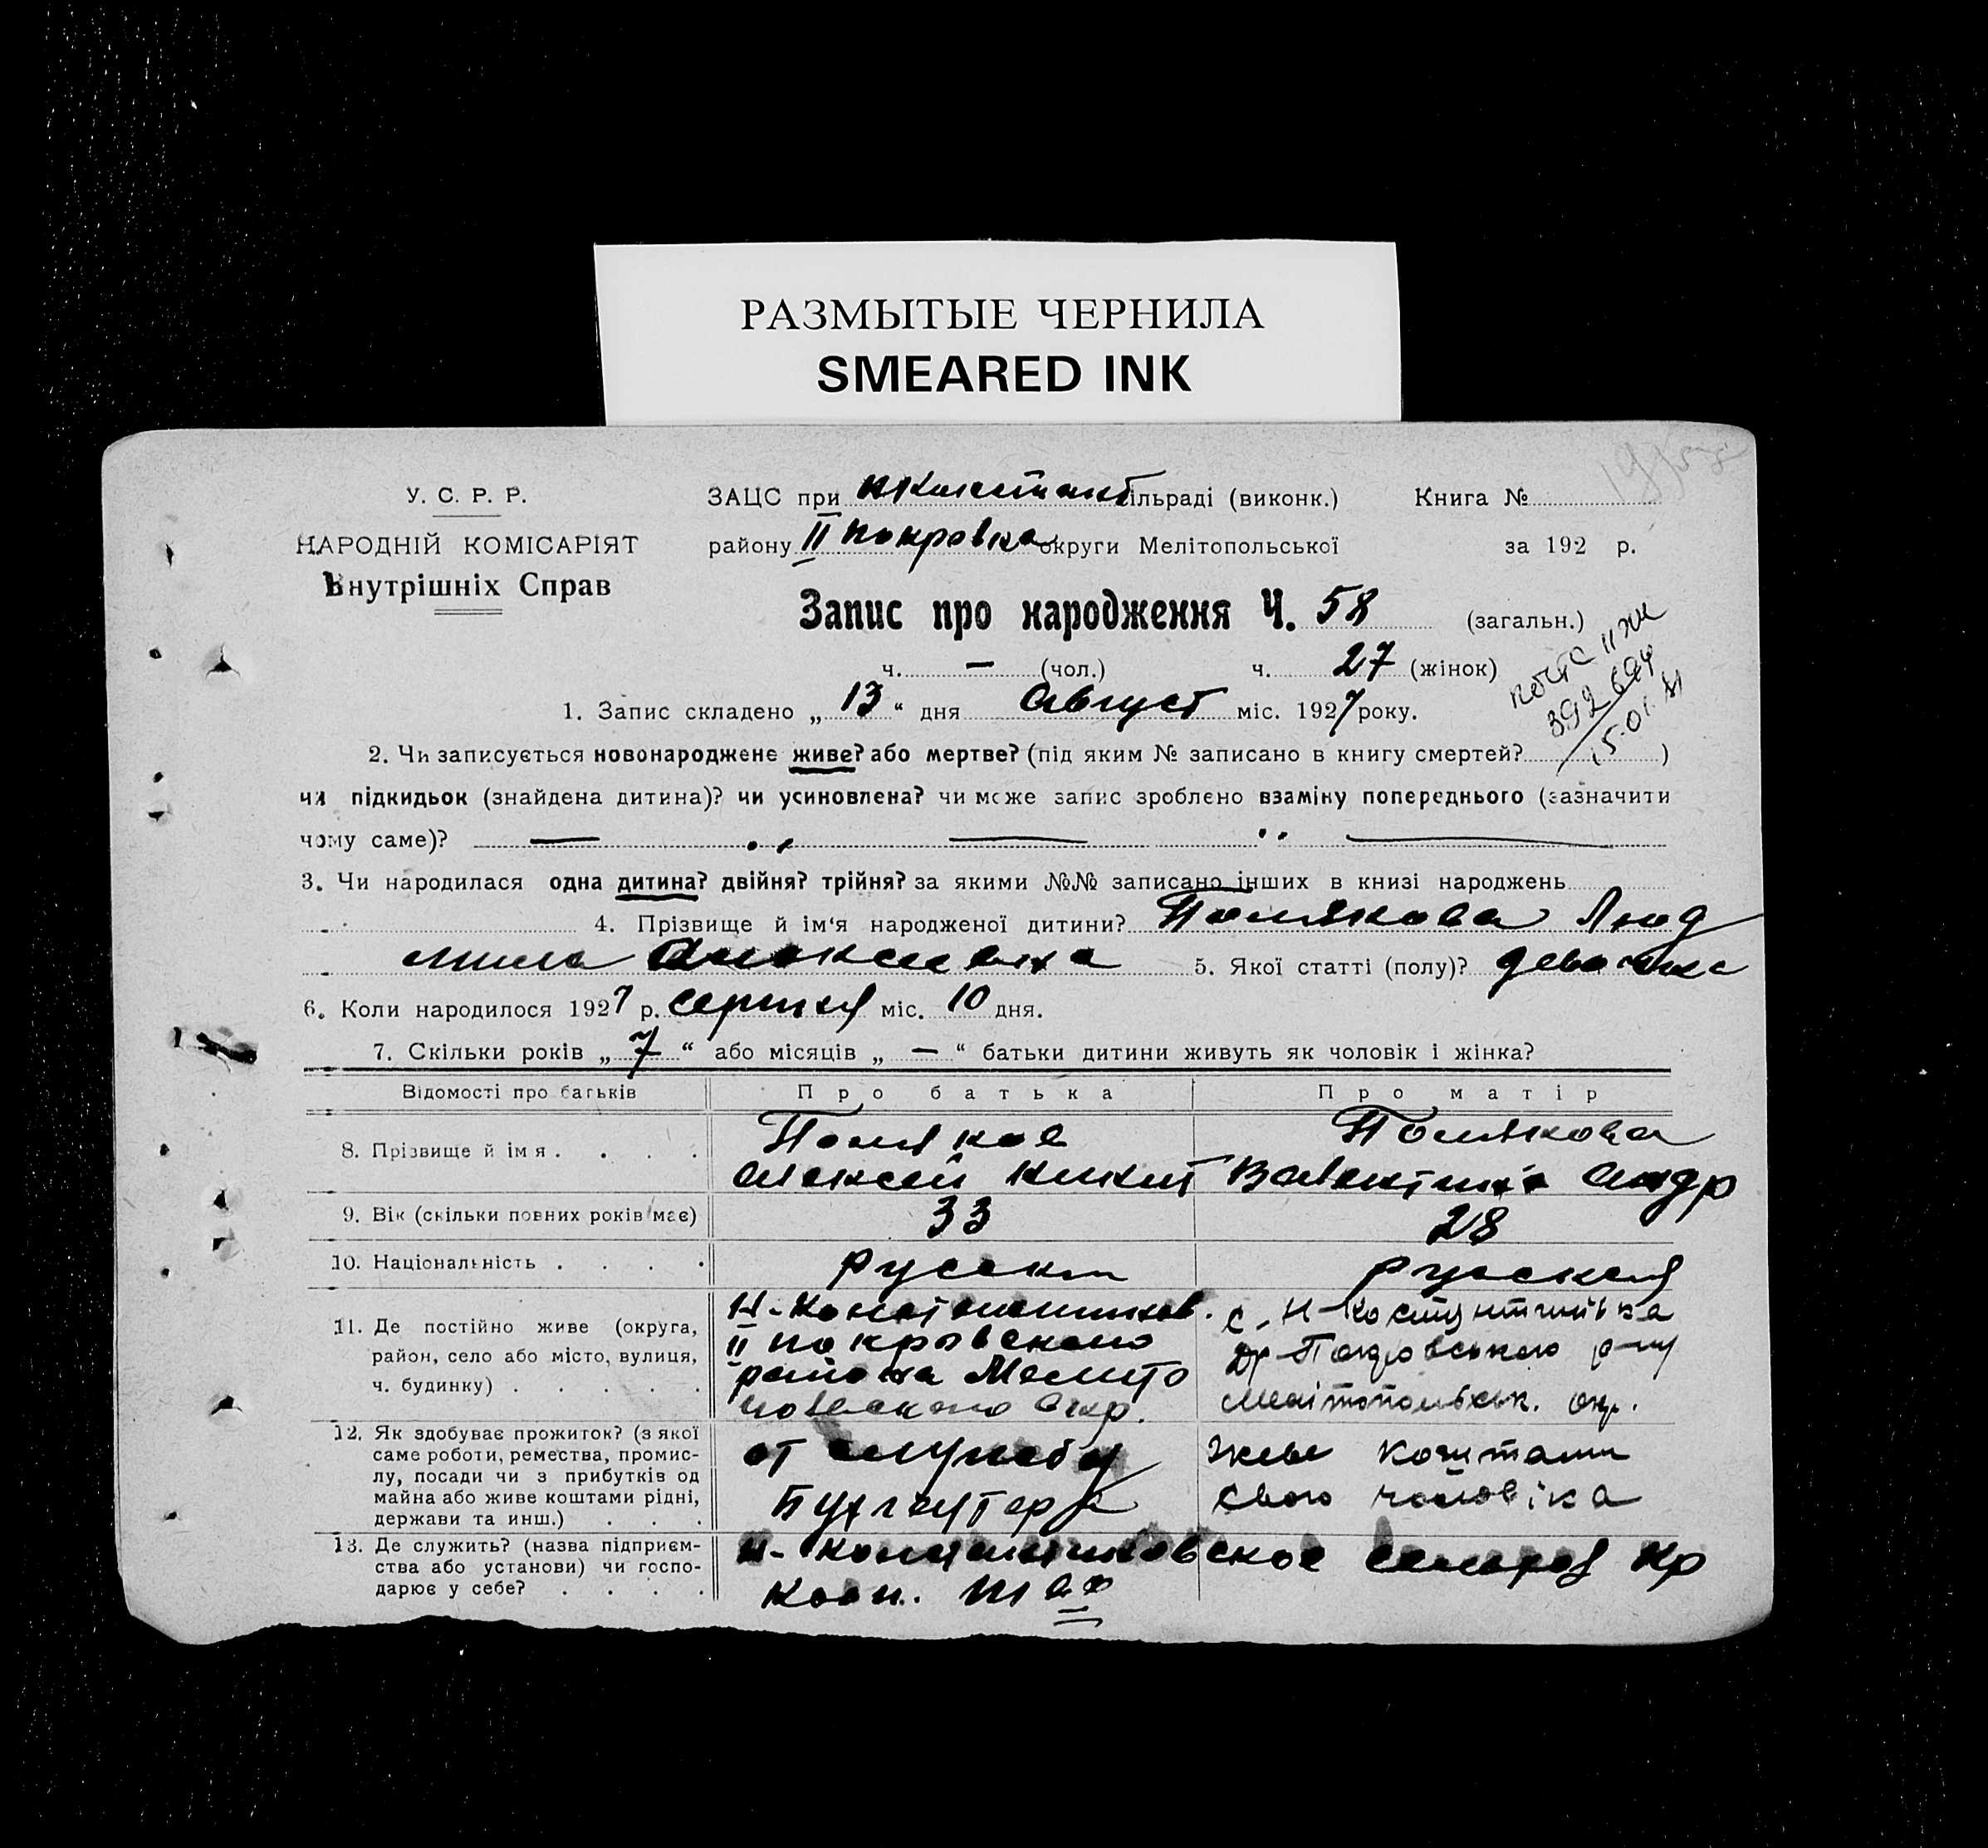 РАЗМЫТЫЕ ЧЕРНИЛА
SMEARED INK
У. С. Р. Р.
НАРОДНІЙ КОМІСАРІЯТ
Внутрішніх Справ
ЗАЦС при сільраді (виконк.)
району II Покровка округи Мелітопольської
Книга №
за 192 р.
Запис про народження Ч. 58 (загальн.)
ч. — (чол.) ч. 27 (жінок)
1. Запис складено „ 13 “ дня Август міс. 1927 року.
392694
15.01.81
2. Чи записується новонароджене живе? або мертве? (під яким № записано в книгу смертей? )
чи підкидьок (знайдена дитина)? чи усиновлена? чи може запис зроблено взаміну попереднього (зазначити
чому саме)? — „ — „ —
3. Чи народилася одна дитина? двійня? трійня? за якими №№ записано інших в книзі народжень
4. Прізвище й ім‘я народженої дитини? Полякова Люд
мила Алексеевна 5. Якої статті (полу)? девочка
6. Коли народилося 1927 р. серпня міс. 10 дня.
7. Скільки років „ 7 “ або місяців „ — “ батьки дитини живуть як чоловік і жінка?
Відомості про батьків Про батька Про матір
8. Прізвище й ім я . . . .
Поляков
Алексей Никит
Полякова
Валентина Андр
9. Вік (скільки повних років має) 33 28
10. Національність . . . . русский русская
11. Де постійно живе (округа,
район, село або місто, вулиця,
ч. будинку) . . . . .
Н-Константинов.
II Покровского
района Мелито
польского Окр.
с. Н-Костянтинівка
Др-Покровського р-ну
Мелітопольськ. окр.
12. Як здобуває прожиток? (з якої
саме роботи, ремества, промис-
лу, посади чи з прибутків од
майна або живе коштами рідні,
держави та инш.) . . .
от службы
Бухгалтера
живе коштами
свого чоловіка
13. Де служить? (назва підприєм-
ства або установи) чи госпо-
дарює у себе? . . . .
Н-Константиновское Кр
Кооп. Т-во